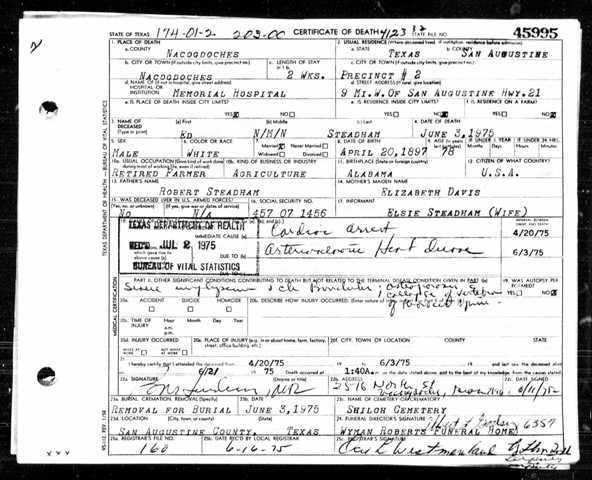 STATE OF TEXAS 174-01-2 203-00 CERTIFICATE OF DEATH 4123 STATE FILE NO. 45995
1. PLACE OF DEATH
a. COUNTY NACOGDOCHES
2. USUAL RESIDENCE (Where deceased lived. If institution: residence before admission)
a. STATE TEXAS b. COUNTY SAN AUGUSTINE
b. CITY OR TOWN (If outside city limits, give precinct no.) NACOGDOCHES
c. LENGTH OF STAY in 1 b. 2 WKS.
c. CITY OR TOWN (If outside city limits, give precinct no.) PRECINCT # 2
d. NAME OF (If not in hospital, give street address) HOSPITAL OR INSTITUTION MEMORIAL HOSPITAL
d. STREET ADDRESS (If rural, give location) 9 MI.W.OF SAN AUGUSTINE HWY.21
e. IS PLACE OF DEATH INSIDE CITY LIMITS? YES NO
e. IS RESIDENCE INSIDE CITY LIMITS? YES NO
f. IS RESIDENCE ON A FARM? YES NO
3. NAME OF DECEASED (Type or print) (a) First ED (b) Middle N/M/N (c) Last STEADHAM
4. DATE OF DEATH JUNE 3,1975
5. SEX MALE
6. COLOR OR RACE WHITE
7. Married Never Married Widowed Divorced
8. DATE OF BIRTH APRIL 20,1897
9. AGE 78
IF UNDER 1 YEAR Months Days IF UNDER 24 HRS. Hours Minutes
10a. USUAL OCCUPATION (Give kind of work done during most of working life, even if retired) RETIRED FARMER
10b. KIND OF BUSINESS OR INDUSTRY AGRICULTURE
11. BIRTHPLACE (State or foreign country) ALABAMA
12. CITIZEN OF WHAT COUNTRY? U.S.A.
13. FATHER'S NAME ROBERT STEADHAM
14. MOTHER'S MAIDEN NAME ELIZABETH DAVIS
15. WAS DECEASED EVER IN U.S. ARMED FORCES? (Yes, no, or unknown) (If yes, give war or dates of service) NO N/A
16. SOCIAL SECURITY NO. 457 07 1456
17. INFORMANT ELSIE STEADHAM (WIFE)
TEXAS DEPARTMENT OF HEALTH
REC'D JUL 2 1975
BUREAU OF VITAL STATISTICS
IMMEDIATE CAUSE (a) Cardiac arrest 4/20/75
DUE TO (b) Heart Disease 6/3/75
DUE TO (c)
PART II. OTHER SIGNIFICANT CONDITIONS CONTRIBUTING TO DEATH BUT NOT RELATED TO THE TERMINAL DISEASE CONDITION GIVEN IN PART I(a)
19. WAS AUTOPSY PERFORMED? YES NO
20a. ACCIDENT SUICIDE HOMICIDE
20b. DESCRIBE HOW INJURY OCCURRED.
20c. TIME OF INJURY Hour Month Day Year a.m. p.m.
20d. INJURY OCCURRED WHILE AT WORK NOT WHILE AT WORK
20e. PLACE OF INJURY (e.g. in or about home, farm, factory, street, office building, etc.)
20f. CITY, TOWN, OR LOCATION COUNTY STATE
21. I hereby certify that I attended the deceased from 4/20/75 to 6/3/75 and last saw the deceased alive
on 6/2/ 75 Death occurred at 1:40A. m. on the date stated above, and to the best of my knowledge, from the causes stated.
22a. SIGNATURE (Degree or title)
22b. ADDRESS North St
22c. DATE SIGNED
23a. BURIAL, CREMATION, REMOVAL (Specify) REMOVAL FOR BURIAL
23b. DATE JUNE 3,1975
23c. NAME OF CEMETERY OR CREMATORY SHILOH CEMETERY
23d. LOCATION (City, town, or county) (State) SAN AUGUSTINE COUNTY, TEXAS
24. FUNERAL DIRECTOR'S SIGNATURE 6357
WYMAN ROBERTS FUNERAL HOME
25a. REGISTRAR'S FILE NO. 160
25b. DATE REC'D BY LOCAL REGISTRAR 6-16-75
25c. REGISTRAR'S SIGNATURE
TEXAS DEPARTMENT OF HEALTH — BUREAU OF VITAL STATISTICS
MEDICAL CERTIFICATION